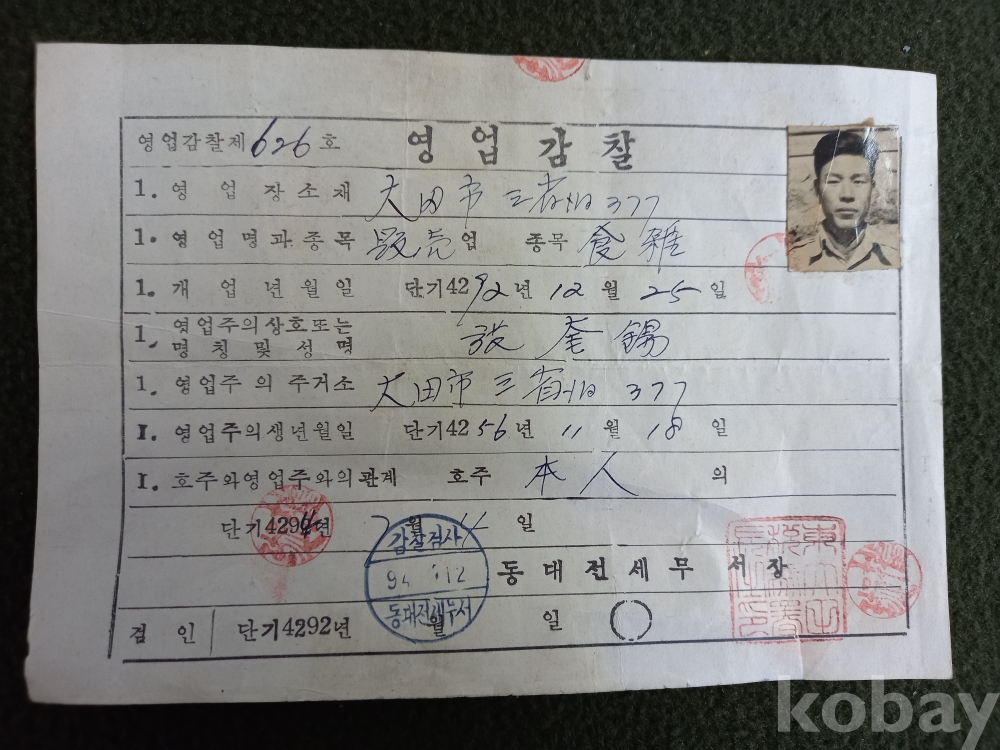 영업감찰제 626 호 영업감찰
1. 영업장소재 大田市 三省洞 377
1. 영업명과종목 販売 업 종목 食雜
1. 개업년월일 단기4292년 12월 25일
1. 영업주의상호또는
명칭및성명 奎錫
1. 영업주의주거소 大田市 三省洞 377
1. 영업주의생년월일 단기4256년 11월 18일
1. 호주와영업주와의관계 호주 本人 의
단기4294년 7월 일
감찰검사
동대전세무서장
동대전세무서
검인 단기4292년 월 일
kobay